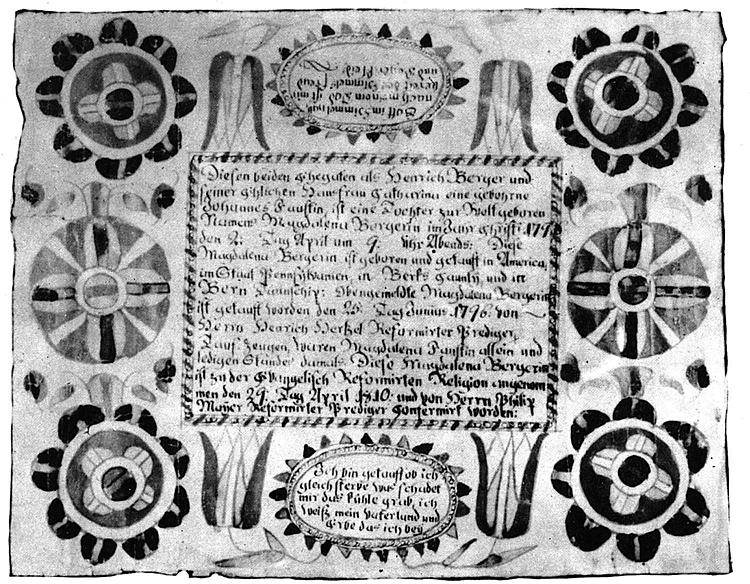 Gott im Himmel
nach meinem Tod ist mir
bereit der Himmels Freud
und
Diesen beiden Ehegatten als Henrich Berger und
seiner Ehlichen Hausfrau Catharina eine gebohrne
Johannes Faustin, ist eine Tochter zur Welt geboren
Namens Magdalena Bergerin im Jahr Christi 179
den 2. Tag April um 9. Uhr Abends: Diese
Magdalena Bergerin ist geboren und getauft in America,
im Staat Pennsylvanien, in Berks Caunty, und in
Bern Taunschip: Obengemeldte Magdalena Bergerin
ist getauft worden den 25. Tag Junius 1796. von
Herrn Henrich Hertzel Reformirter Prediger,
Tauf Zeugen, waren Magdalena Faustin allein und
ledigen Standes damals. Diese Magdalena Bergerin
ist zu der Evangelisch Reformirten Religion angenom
men den 29. Tag April 1810. und von Herrn Philip
Moÿer Reformirter Prediger Confermirt worden:
Ich bin getauft ob ich
gleich sterbe was schadet
mir das kühle grab, ich
weiß mein Vaterland und
Erbe das ich beÿ